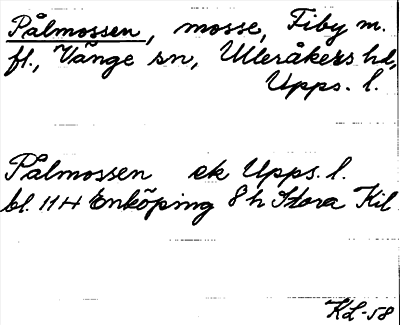 Pålmossen, mosse, Fiby m.
fl., Vänge sn, Ulleråkers hd,
Upps. l.
Pålmossen ek Upps. l.
bl. 11H Enköping 8h Stora Kil
KL-58